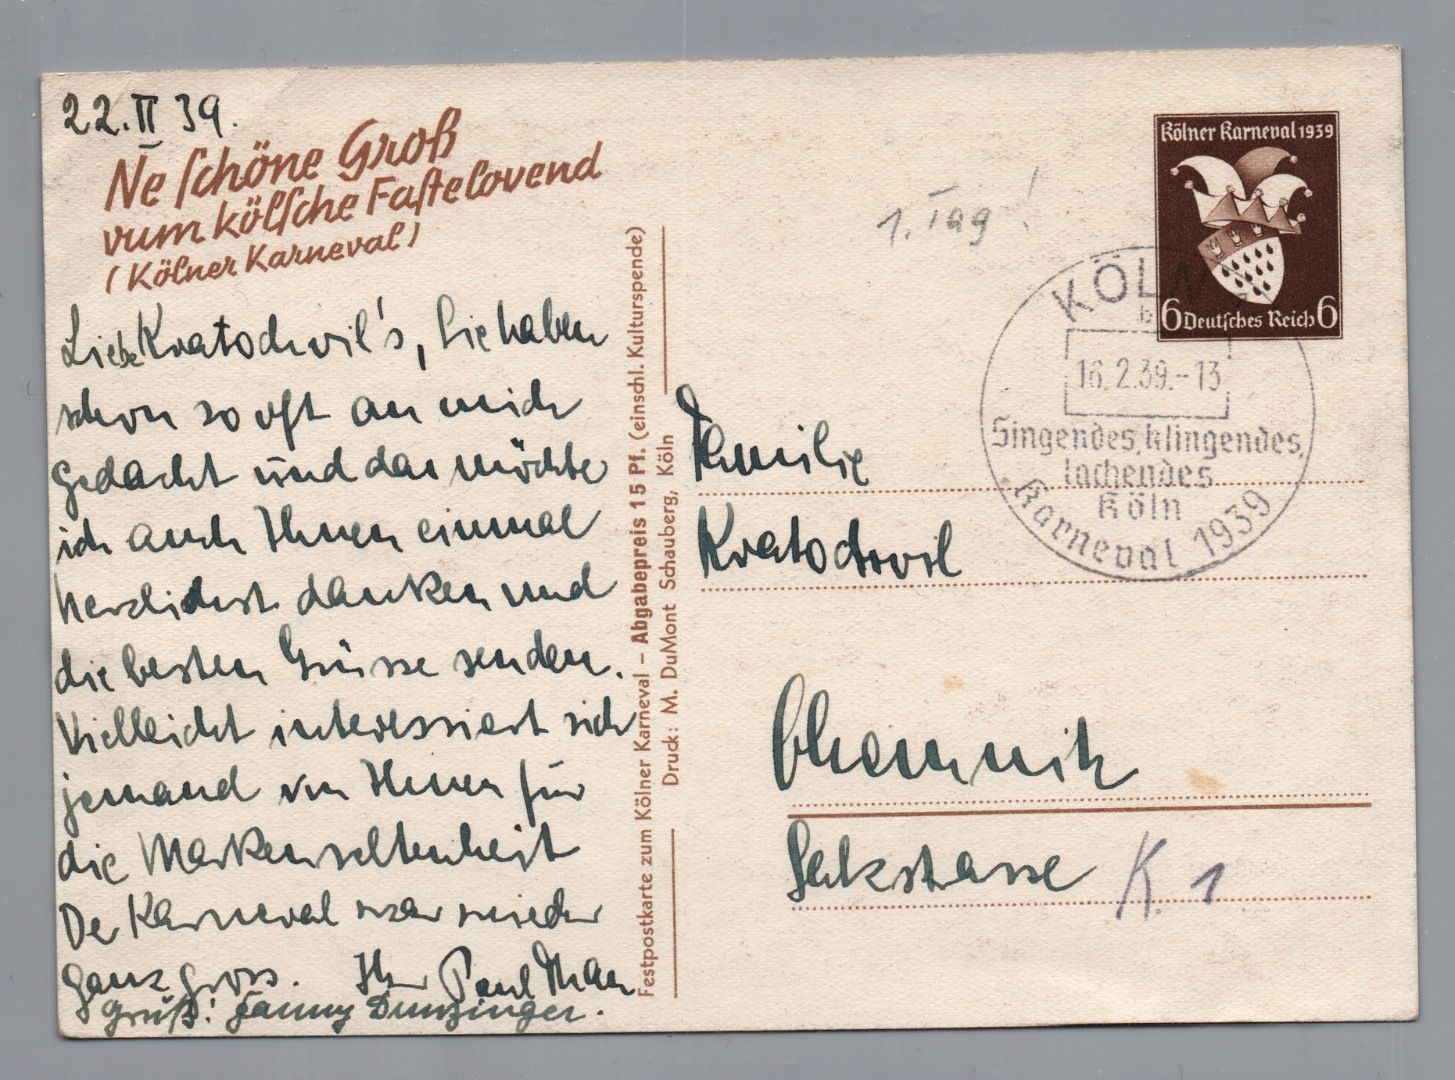 22.II 39.
Ne schöne Groß
vum kölsche Fastelovend
(Kölner Karneval)
Liebe Kratochvil's, Sie haben
schon so oft an mich
gedacht und da möchte
ich auch Ihnen einmal
herzlichst danken und
die besten Grüsse senden.
Vielleicht interessiert sich
jemand von Ihnen für
die Markenseltenheit
De Karneval war wieder
ganz gross. Ihr Paul
Gruß! Fanny Dunzinger.
Festpostkarte zum Kölner Karneval – Abgabepreis 15 Pf. (einschl. Kulturspende)
Druck: M. DuMont Schauberg, Köln
1. Tag!
Kölner Karneval 1939
6 Deutsches Reich 6
KÖLN
16.2.39.-13
Singendes, klingendes,
lachendes
Köln
Karneval 1939
Familie
Kratochvil
Chemnitz
K. 1